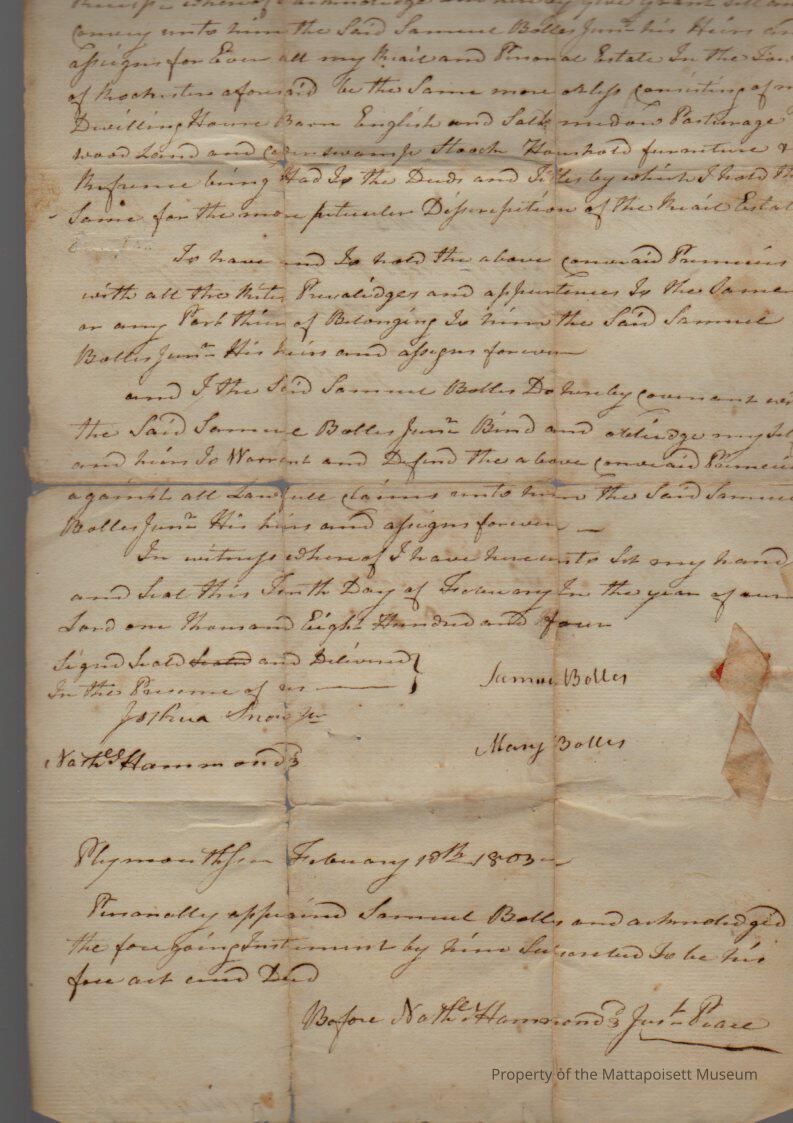 convey unto him the Said Samuel Bolles Junr his Heirs
assigns for Ever all my Reail and Personal Estate In the
of Rochester aforesaid be the Same more or less Consisting of
Dwilling House Barn English and Salt medow Pasturage
wood Land and Household furniture &
Refrence being Had To the Deeds and Titles by which I hold
Same for the more Discrepition of the Reail Estat
To have and To hold the above convaid
with all the Rites Previlidges and appurtences To the Same
or any Part thire of Belonging To him the Said Samuel
Bolles Junr His heirs and assigns forever
and I the Said Samuel Bolles Do hereby covenant
the Said Samuel Bolles Junr Bind and my
and heirs To Warrent and Defend the above convaid
against all Lawfull Claims unto him the Said Samuel
Bolles Junr His heirs and assigns forever —
In witness whereof I have hereunto Set my hand
and Seal this Tenth Day of February In the year of our
Lord one thousand Eight Hundred and four
Signed Seald Seated and Delivered
In the Presence of us ——
Samuel Bolles
Joshua Snow Jr
Mary Bolles
Nathel Hammond 3
Plymouth Ss February 18th 1803 —
Personally appeared Samuel Bolles and acknolidged
the fore going Instrument by him To be his
free act and Deed
Before Nathel Hammond 3 Just Peace
Property of the Mattapoisett Museum